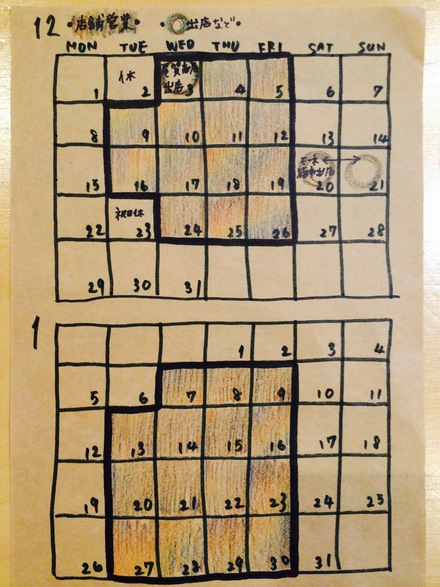 12 ・店舗営業・ ・○出店など・
MON TUE WED THU FRI SAT SUN
1 2 3 4 5 6 7
休
出店
8 9 10 11 12 13 14
15 16 17 18 19 20 21
出店
22 23 24 25 26 27 28
祝日休
29 30 31
1
1 2 3 4
5 6 7 8 9 10 11
12 13 14 15 16 17 18
19 20 21 22 23 24 25
26 27 28 29 30 31